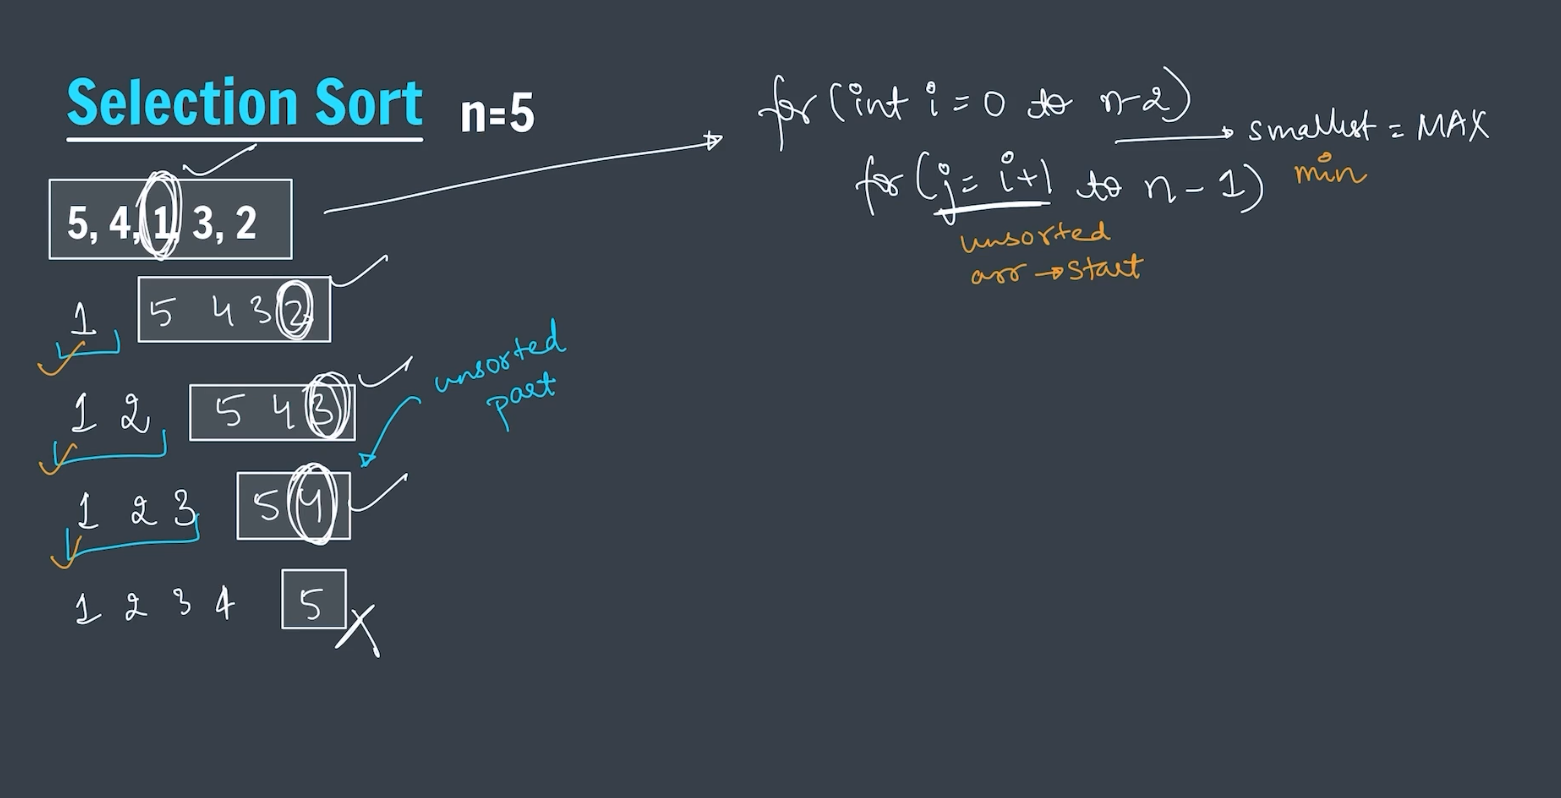 Selection Sort n=5
5, 4, 1, 3, 2
1 5 4 3 2
1 2 5 4 3
1 2 3 5 4
1 2 3 4 5
unsorted
part
for (int i = 0 to n-2)
smallest = MAX
for (j = i+1 to n - 1)
min
unsorted
arr → start